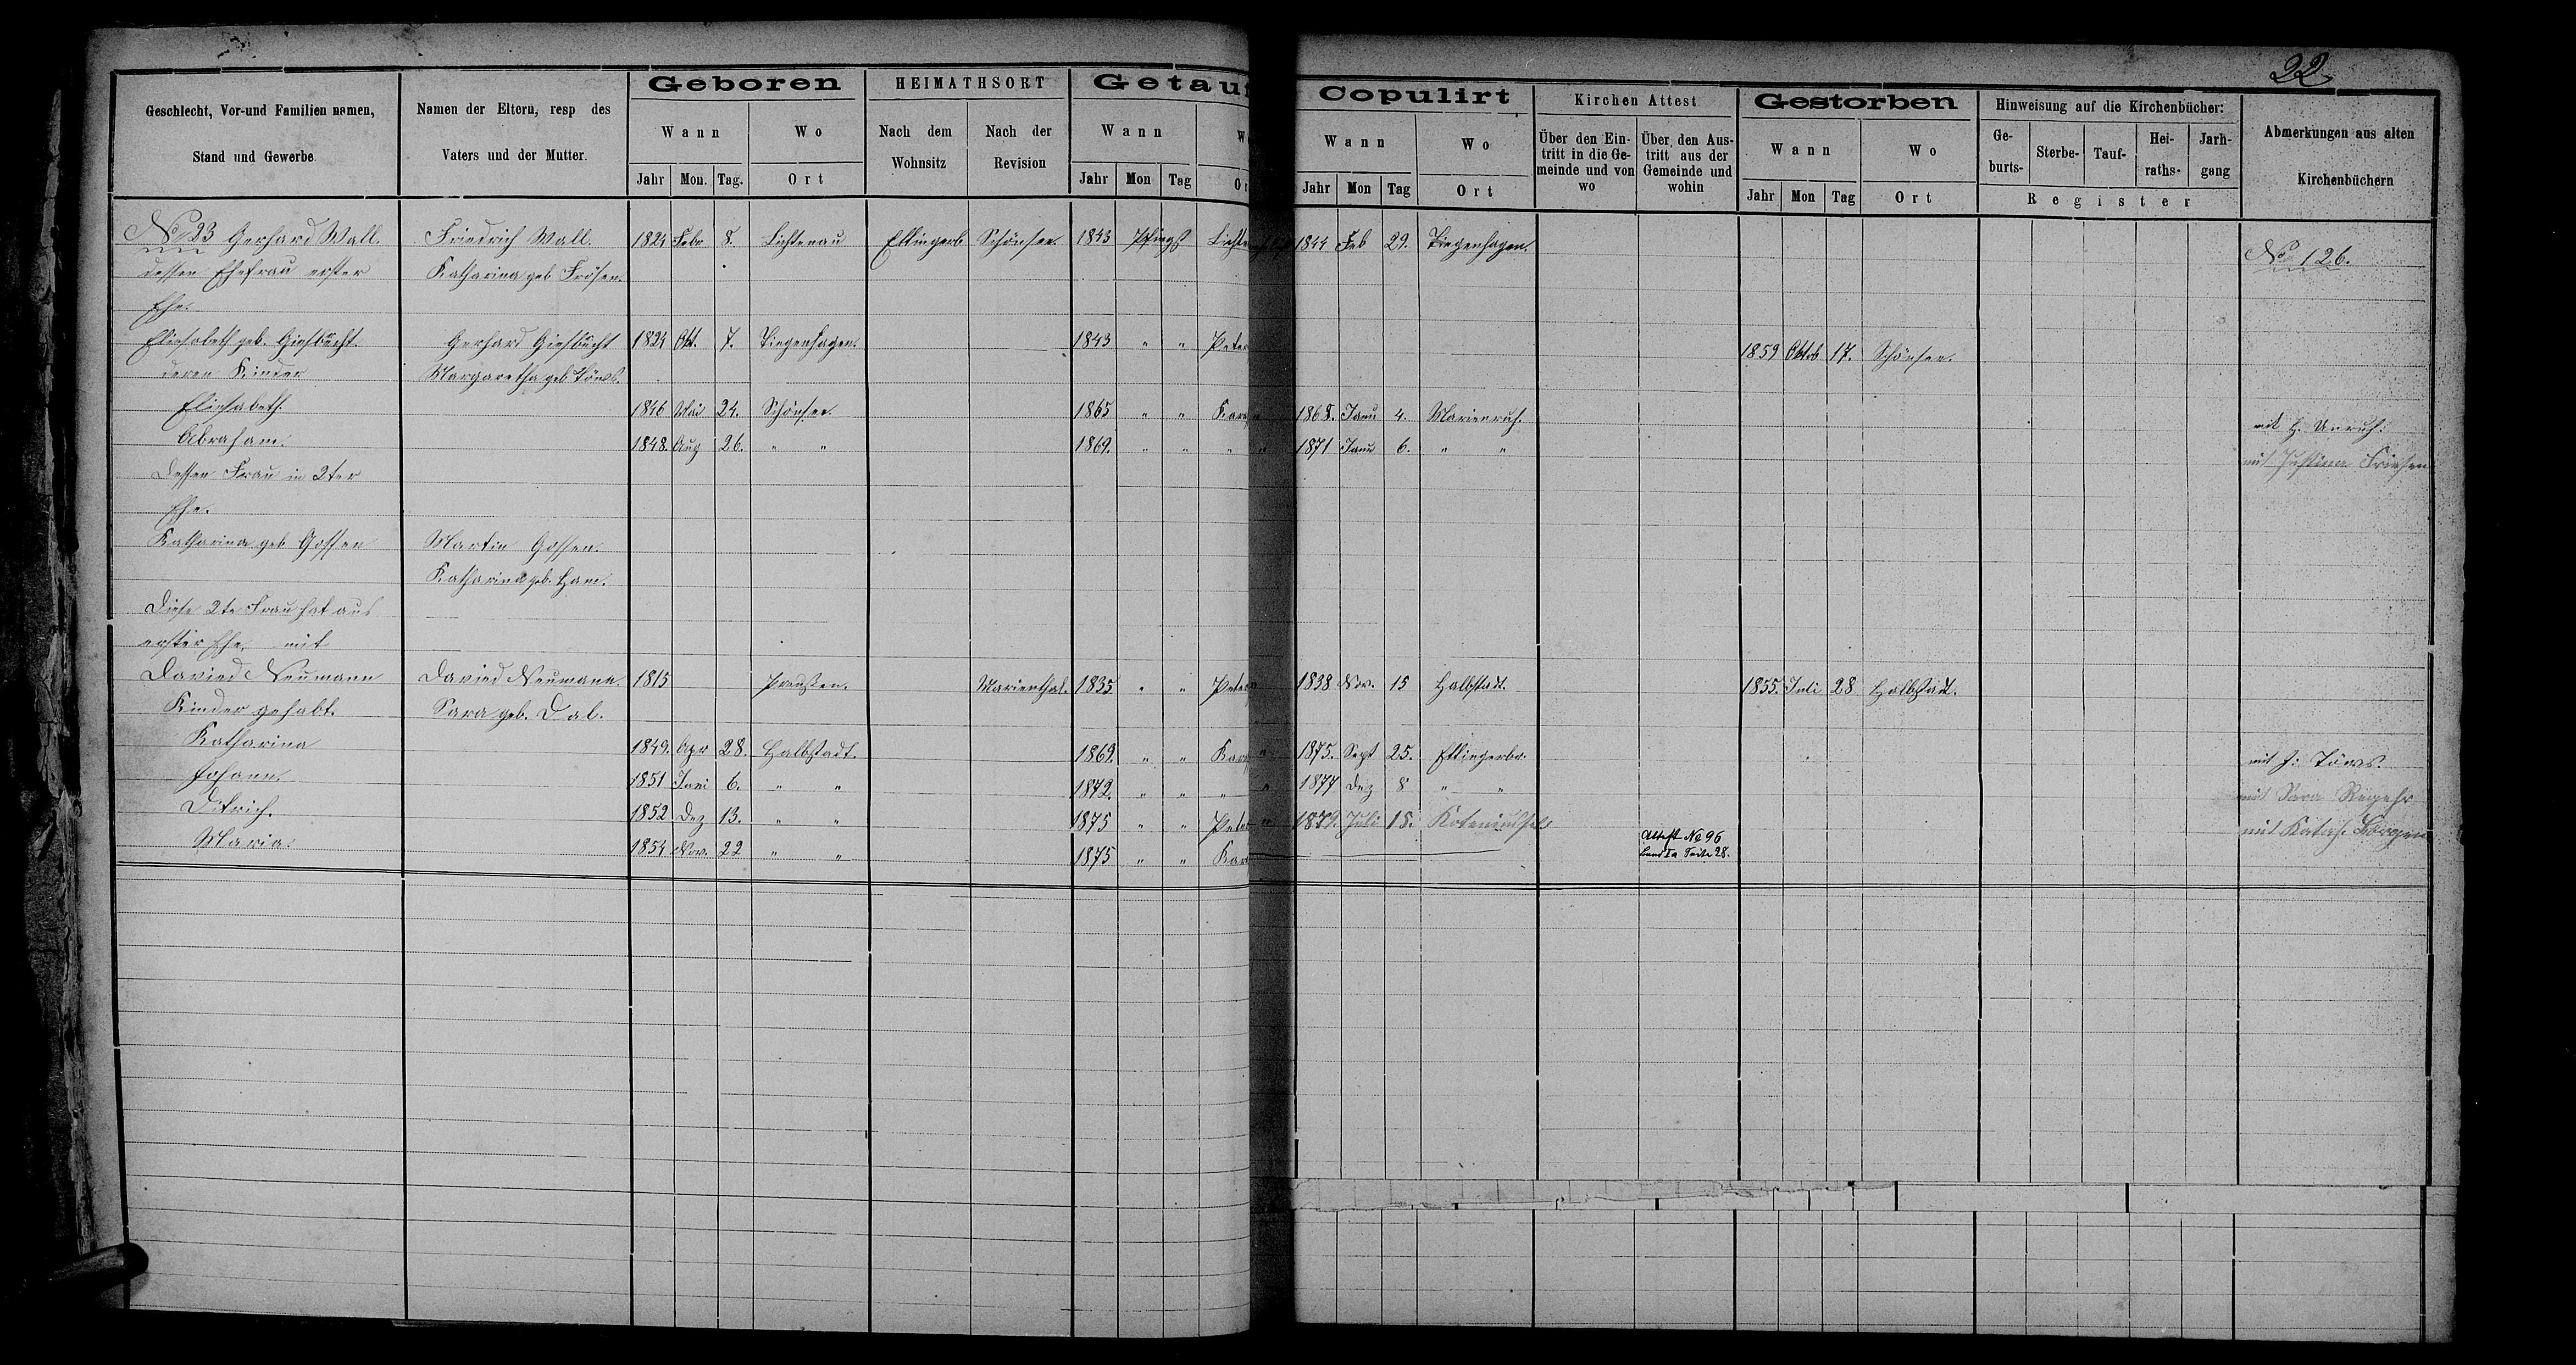 22
Geschlecht, Vor-und Familien namen, Stand und Gewerbe.
Namen der Eltern, resp des Vaters und der Mutter.
Geboren
Wann
Jahr Mon. Tag.
Wo
Ort
HEIMATHSORT
Nach dem Wohnsitz
Nach der Revision
Getau
Wann
Jahr Mon Tag
Copulirt
Wann
Jahr Mon Tag
Wo
Ort
Kirchen Attest
Über den Eintritt in die Gemeinde und von wo
Über den Austritt aus der Gemeinde und wohin
Gestorben
Wann
Jahr Mon Tag
Wo
Ort
Hinweisung auf die Kirchenbücher:
Geburts- Sterbe- Tauf- Heiraths- Jarhgang
Register
Abmerkungen aus alten Kirchenbüchern
No 23 Gerhard Wall. Friedrich Wall. 1824 Febr 8. Lichtenau Ettingerb Schönsee. 1843 Pfingst Lichte 1844 Feb 29. Tiegenhagen. No 126.
dessen Ehefrau erster Katharina geb Frösen.
Ehe.
Eliesabeth geb. Giesbrecht. Gerhard Giesbrecht 1824 Okt. 7. Tiegenhagen. 1843 " " Peter 1859 Oktob 17. Schönsee.
deren Kinder Margaretha geb Töws.
Eliesabeth. 1846 Mai 24. Schönsee. 1865 " " Kara 1868. Janu 4. Marienruh. mit H. Unruh.
Abraham. 1848. Aug 26. " " 1869. " " " " 1871 Janu 6. " " mit Justina Friesen
Dessen Frau in 2ter
Ehe.
Katharina geb Gossen Martin Gossen.
Katharina geb. Ham.
Diese 2te Frau hat aus
erster Ehe mit
David Neumann David Neumann. 1815 Preußen. Marienthal. 1835 " " Peter 1838 Nov. 15 Halbstadt. 1855. Juli 28 Halbstadt.
Kinder gehabt. Sara geb. Dal.
Katharina 1849. Apr 28. Halbstadt. 1869. " " Kara " 1875. Sept 25. Ettingerbr. mit J. Töws.
Johann. 1851 Juni 6. " " 1872. " " " " 1877 Dez 8 " " mit Sara Regehr
Ditrich. 1852 Dez 13. " " 1875 " " Peter " 1879. Juli 15. mit Kath. Bergen
Maria. 1854 Nov. 22 " " 1875 " " Kar Attest No 96
Band Ia Seite 28.